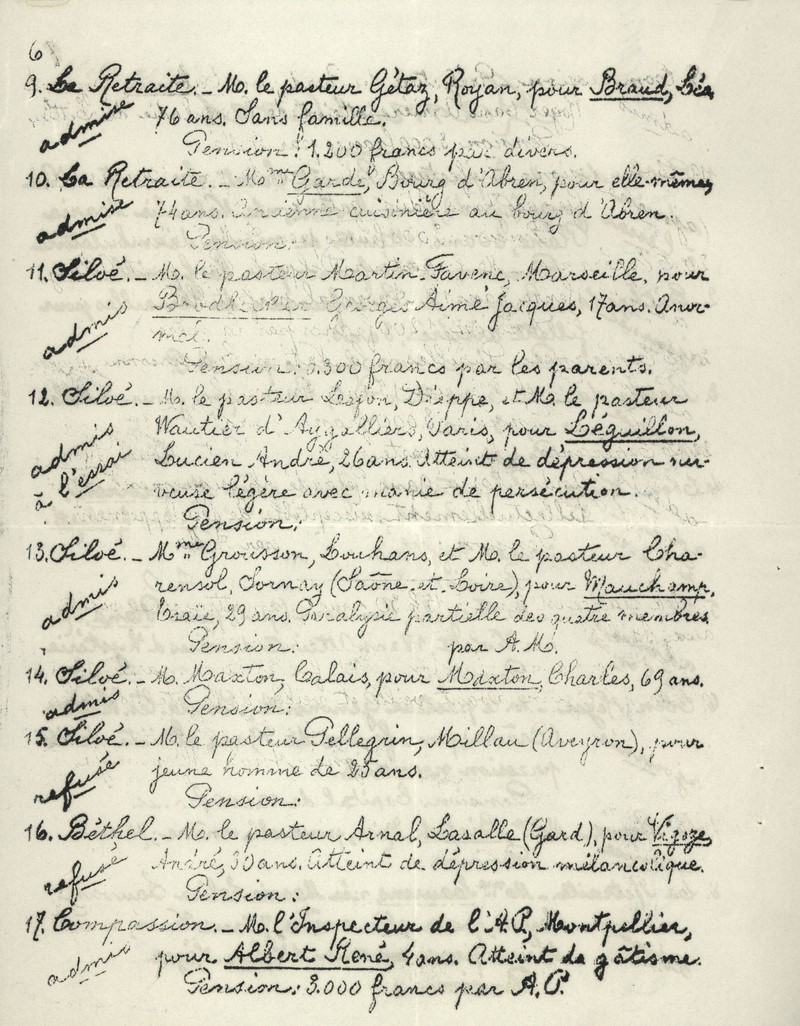 6
9. La Retraite. - M. le pasteur Gétaz, Royan, pour Braud, Léa,
admise
76 ans. Sans famille.
Pension: 1.200 francs par divers.
10. La Retraite. - Mme Garde, Bourg d'Abren, pour elle-même,
admise
74 ans. Ancienne cuisinière au bourg d'Abren.
Pension:
11. Siloé. - M. le pasteur Martin-Favenc, Marseille, pour
admis
Georges Aimé Jacques, 17 ans. Anor-
mal.
Pension: 3.300 francs par les parents.
12. Siloé. - M. le pasteur Lafon, Dieppe, et M. le pasteur
admis
à l'essai
Wautier d'Aygalliers, Paris, pour Léguillon,
Lucien André, 26 ans. Atteint de dépression ner-
veuse légère avec manie de persécution.
Pension:
13. Siloé. - Mme Grousson, Louhans, et M. le pasteur Cha-
admis
rensol, Sornay (Saône-et-Loire), pour Mauchamp,
29 ans. Paralysie partielle des quatre membres.
Pension: par A.M.
14. Siloé. - M. Maxton, Calais, pour Maxton, Charles, 69 ans.
admis
Pension:
15. Siloé. - M. le pasteur Pellegrin, Millau (Aveyron), pour
refusé
jeune homme de 25 ans.
Pension:
16. Béthel. - M. le pasteur Arnal, Lasalle (Gard), pour Vigoze,
refusé
André, 30 ans. Atteint de dépression mélancolique.
Pension:
17. Compassion. - M. l'Inspecteur de l'A.P., Montpellier,
admis
pour Albert René, 4 ans. Atteint de gâtisme.
Pension: 3.000 francs par A.P.